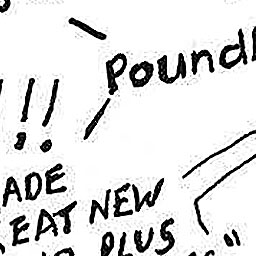 Pound
!!
ADE
EAT NEW
PLUS